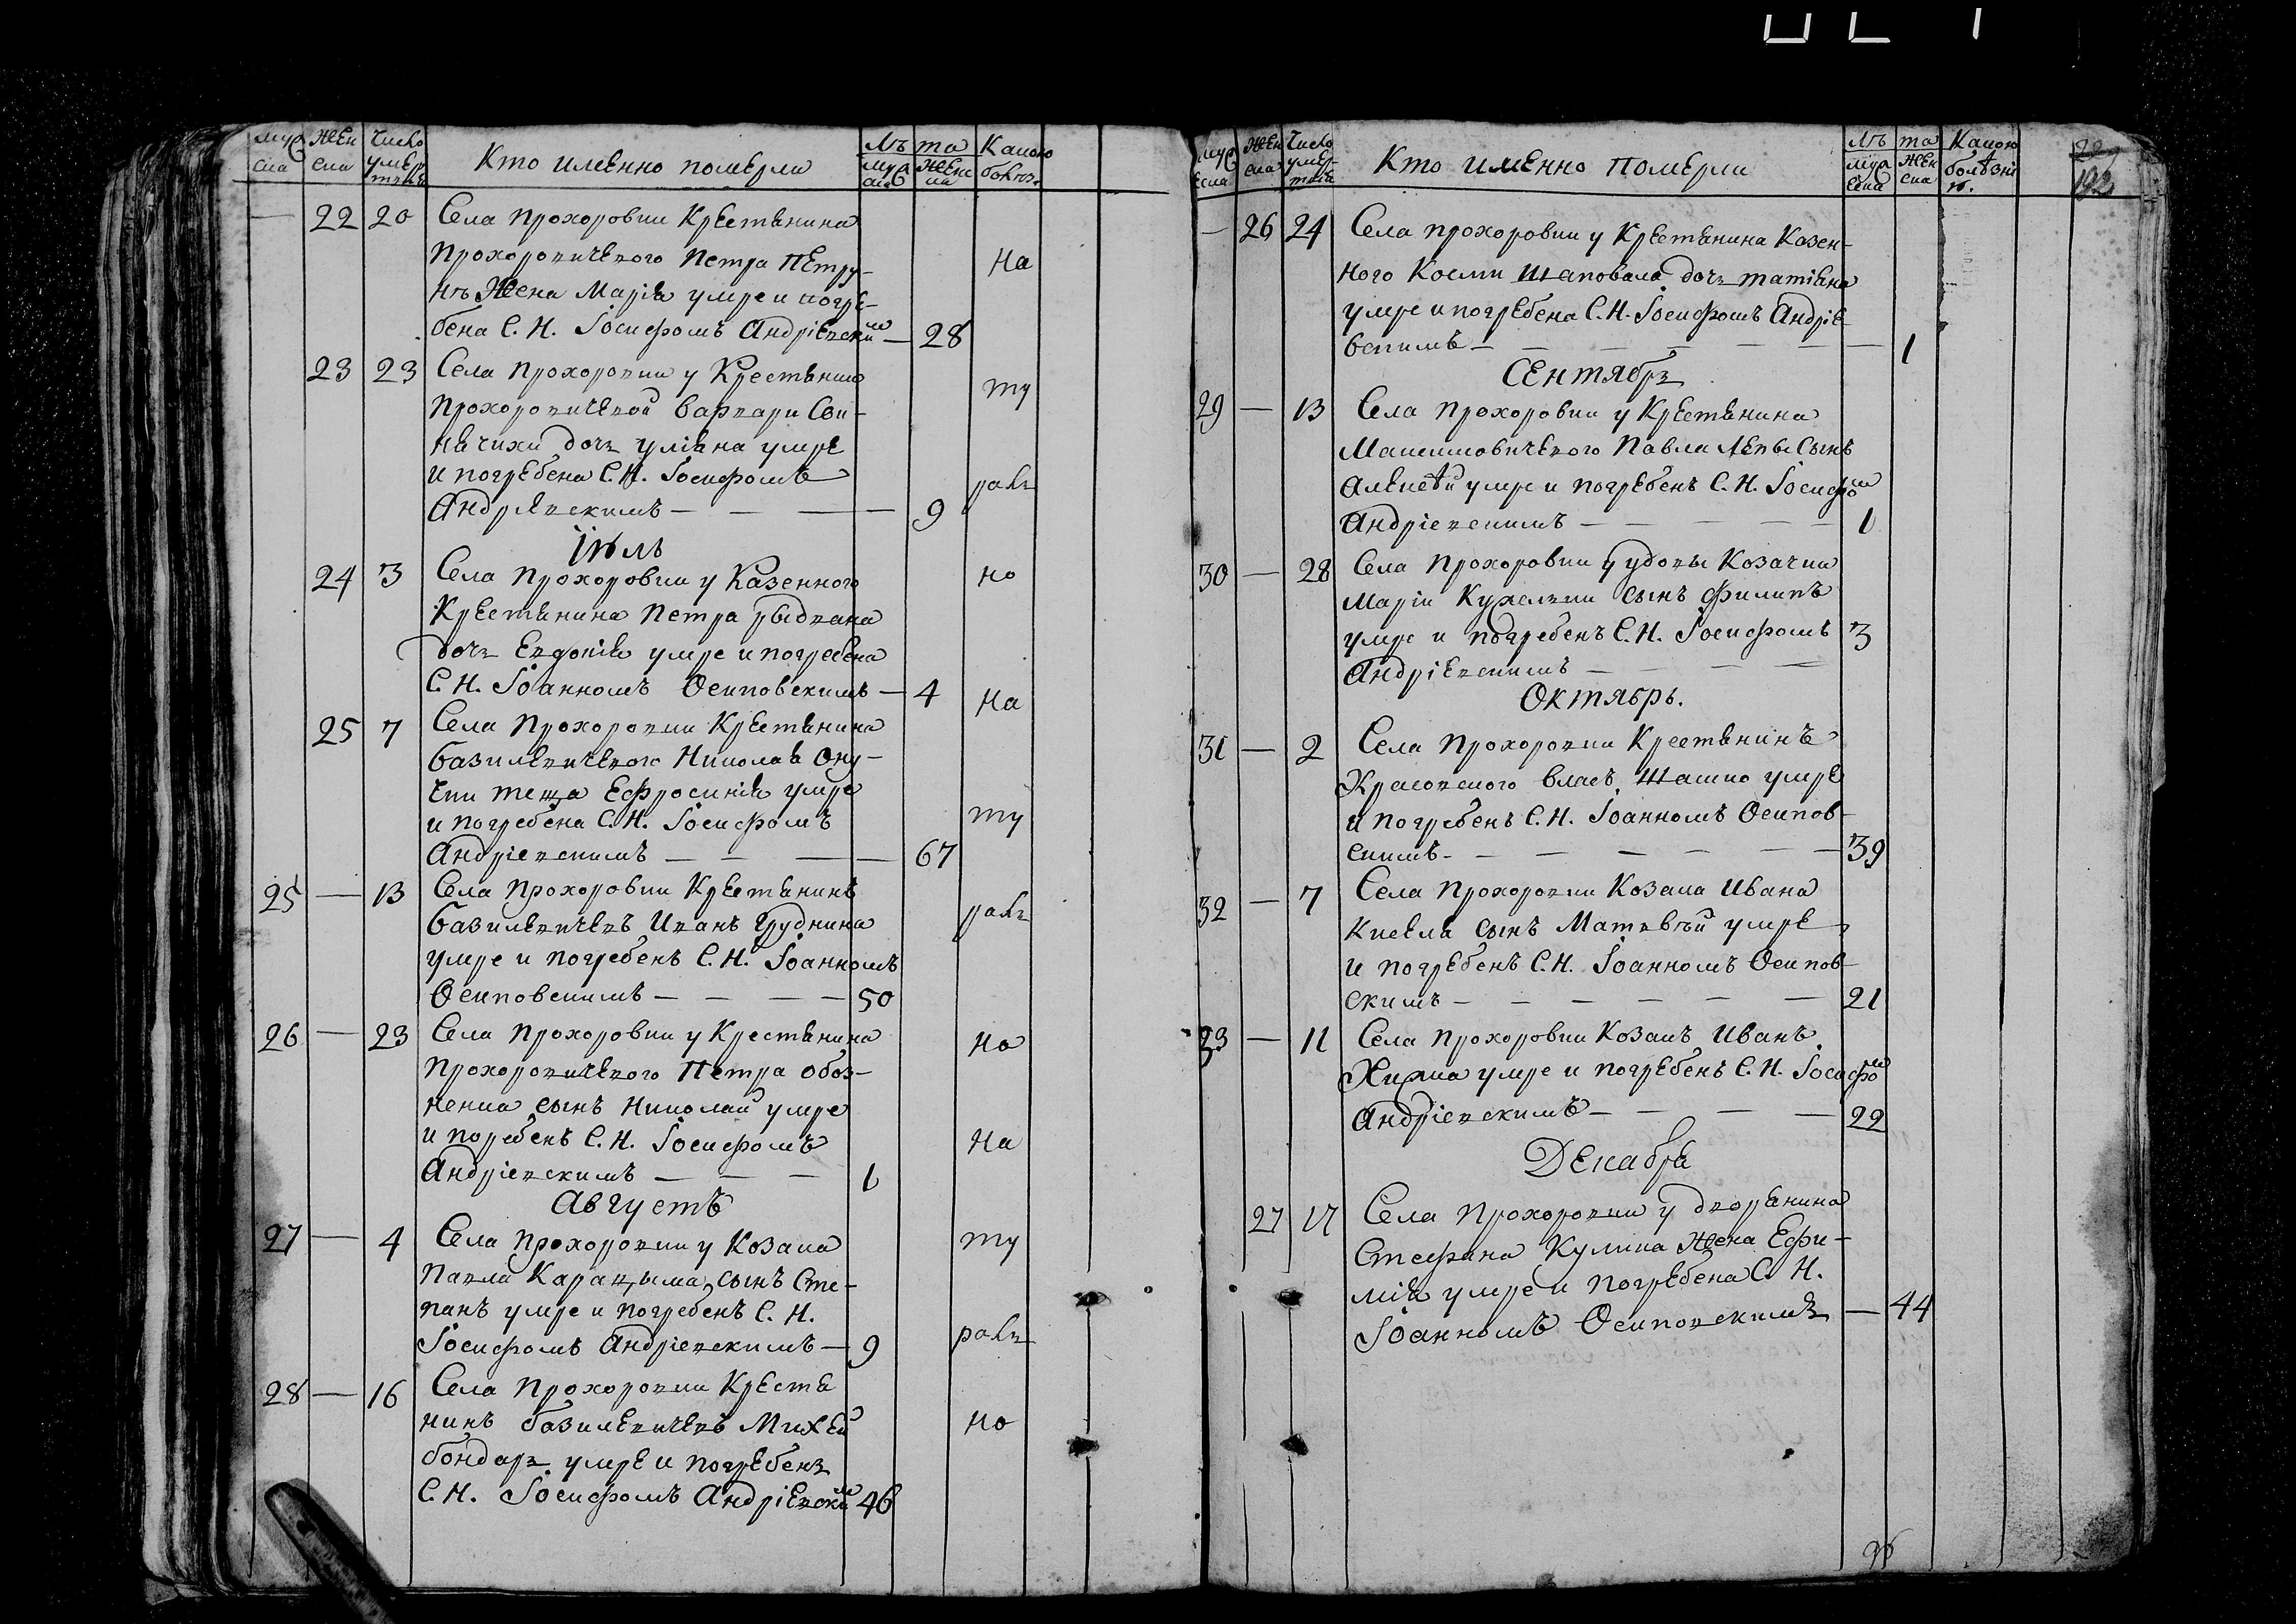 Муж Жен Число Лѣ та Какою
ска ска умер Кто именно померли муж женс болѣз.
— 22 20 Села Прохоровки Крестянина
Прохоровичевого Петра Петру-
Жена Марія умре и погре- На
бена С. Н. Іосифомъ Андріевским — 28
23 23 Села Прохоровки у Крестянина
Прохоровичевой Варвари Сви- ту
нячихи дочь Уліяна умре
и погребена С. Н. Іосифомъ ральн
Андріевскимъ — — — — 9
Іюль
24 3 Села Прохоровки у Казенного но
Крестянина Петра Рыдвана
дочь Евдокія умре и погребена
С. Н. Іоанномъ Осиповскимъ — 4 На
25 7 Села Прохоровки Крестянина
Базилевичевого Николая Ону-
чки теща Ефросинія умре
и погребена С. Н. Іосифомъ ту
Андріевскимъ — — — — 67
25 — 13 Села Прохоровки Крестянинъ
Базилевичевъ Иванъ Груднина ральн
умре и погребенъ С. Н. Іоанномъ
Осиповскимъ — — — — 50
26 — 23 Села Прохоровки у Крестянина но
Прохоровичевого Петра Обоз-
ненка сынъ Николай умре
и поребенъ С. Н. Іосифомъ На
Андріевскимъ — — — 1
Августъ
27 — 4 Села Прохоровки у Козака ту
Павла Карацыма, сынъ Сте-
панъ умре и погребенъ С. Н.
Іосифомъ Андріевскимъ — 9 ральн
28 — 16 Села Прохоровки Крестя
нинъ Базилевичевъ Михей но
Бондарь умре и погребенъ
С. Н. Іосифомъ Андріевским 46
Муж Жен Число Лѣ та Какою
еска ска умер Кто именно померли муж жен болѣзні
192
— 26 24 Села Прохоровки у Крестянина Казен-
ного Косми Шаповала дочь Татіяна
умре и погребена С. Н. Іосифомъ Андріе-
вскимъ — — — — — — — 1
Сентябрь
29 — 13 Села Прохоровки у Крестянина
Максимовичевого Павла Лепы Сынъ
Алексѣй умре и погребенъ С. Н. Іосифом
Андріевскимъ — — — — — 1
30 — 28 Села Прохоровки у удовы Козачки
Маріи Кужелни сынъ Филипъ
умре и погребенъ С. Н. Іосифомъ 3
Андріевскимъ — — — —
Октябрь.
31 — 2 Села Прохоровки Крестянинъ
Красовского Власъ Шашко умре
и погребенъ С. Н. Іоанномъ Осипов-
скимъ — — — — — — 39
32 — 7 Села Прохоровки Козака Ивана
Киселя сынъ Матвѣй умре
и погребенъ С. Н. Іоанномъ Осипов-
скимъ — — — — — — 21
33 — 11 Села Прохоровки Козакъ Иванъ
умре и погребенъ С. Н. Іосифом
Андріевскимъ — — — — 22
Декабря
27 17 Села Прохоровки у дворянина
Стефана Кулика Жена Ефи-
мія умре и погребена С. Н.
Іоанномъ Осиповскимъ — 44